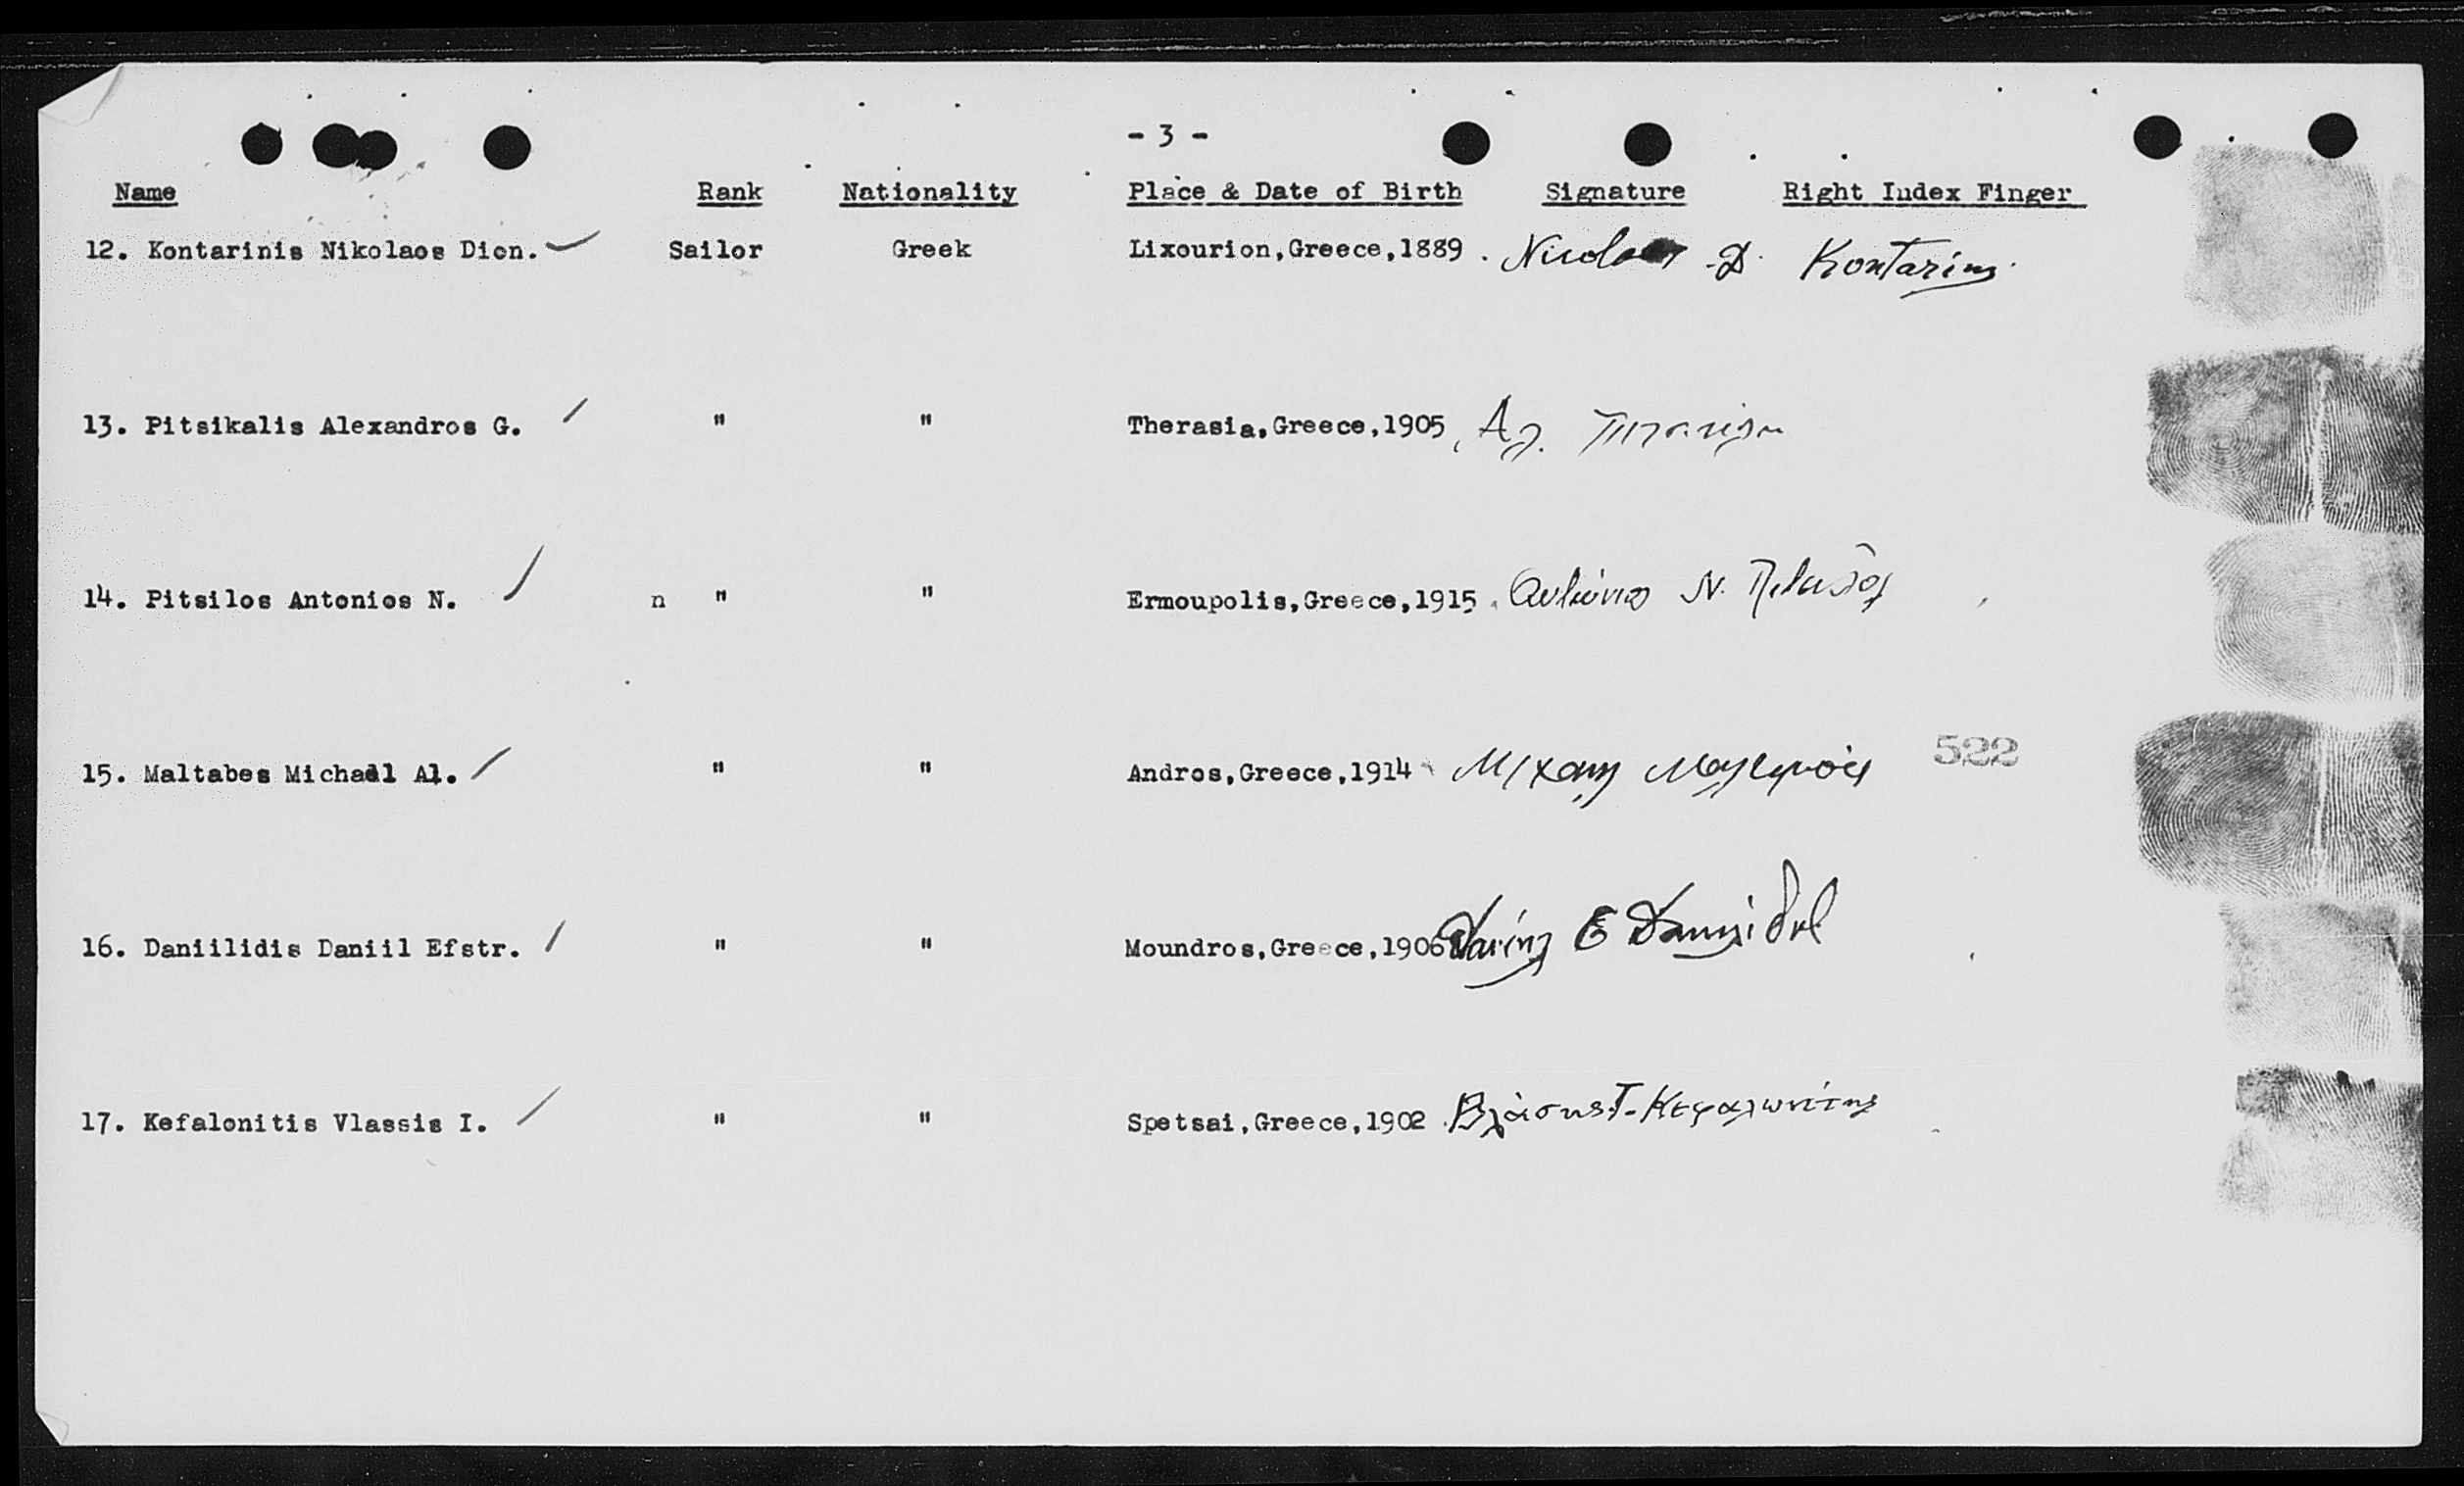 - 3 -
Name Rank Nationality Place & Date of Birth Signature Right Index Finger
12. Kontarinis Nikolaos Dion. Sailor Greek Lixourion,Greece,1889. Nicolaos D. Kontarinis
13. Pitsikalis Alexandros G. " " Therasia,Greece,1905 Αλ.
14. Pitsilos Antonios N. n " " Ermoupolis,Greece,1915. Αντώνιος Ν. Πιτσιλός
15. Maltabes Michael Al. " " Andros,Greece,1914 Μιχαηλ
522
16. Daniilidis Daniil Efstr. " " Moundros,Greece,1906 Δανιήλ Ε
17. Kefalonitis Vlassis I. " " Spetsai,Greece,1902. Βλάσης Ι. Κεφαλωνίτης